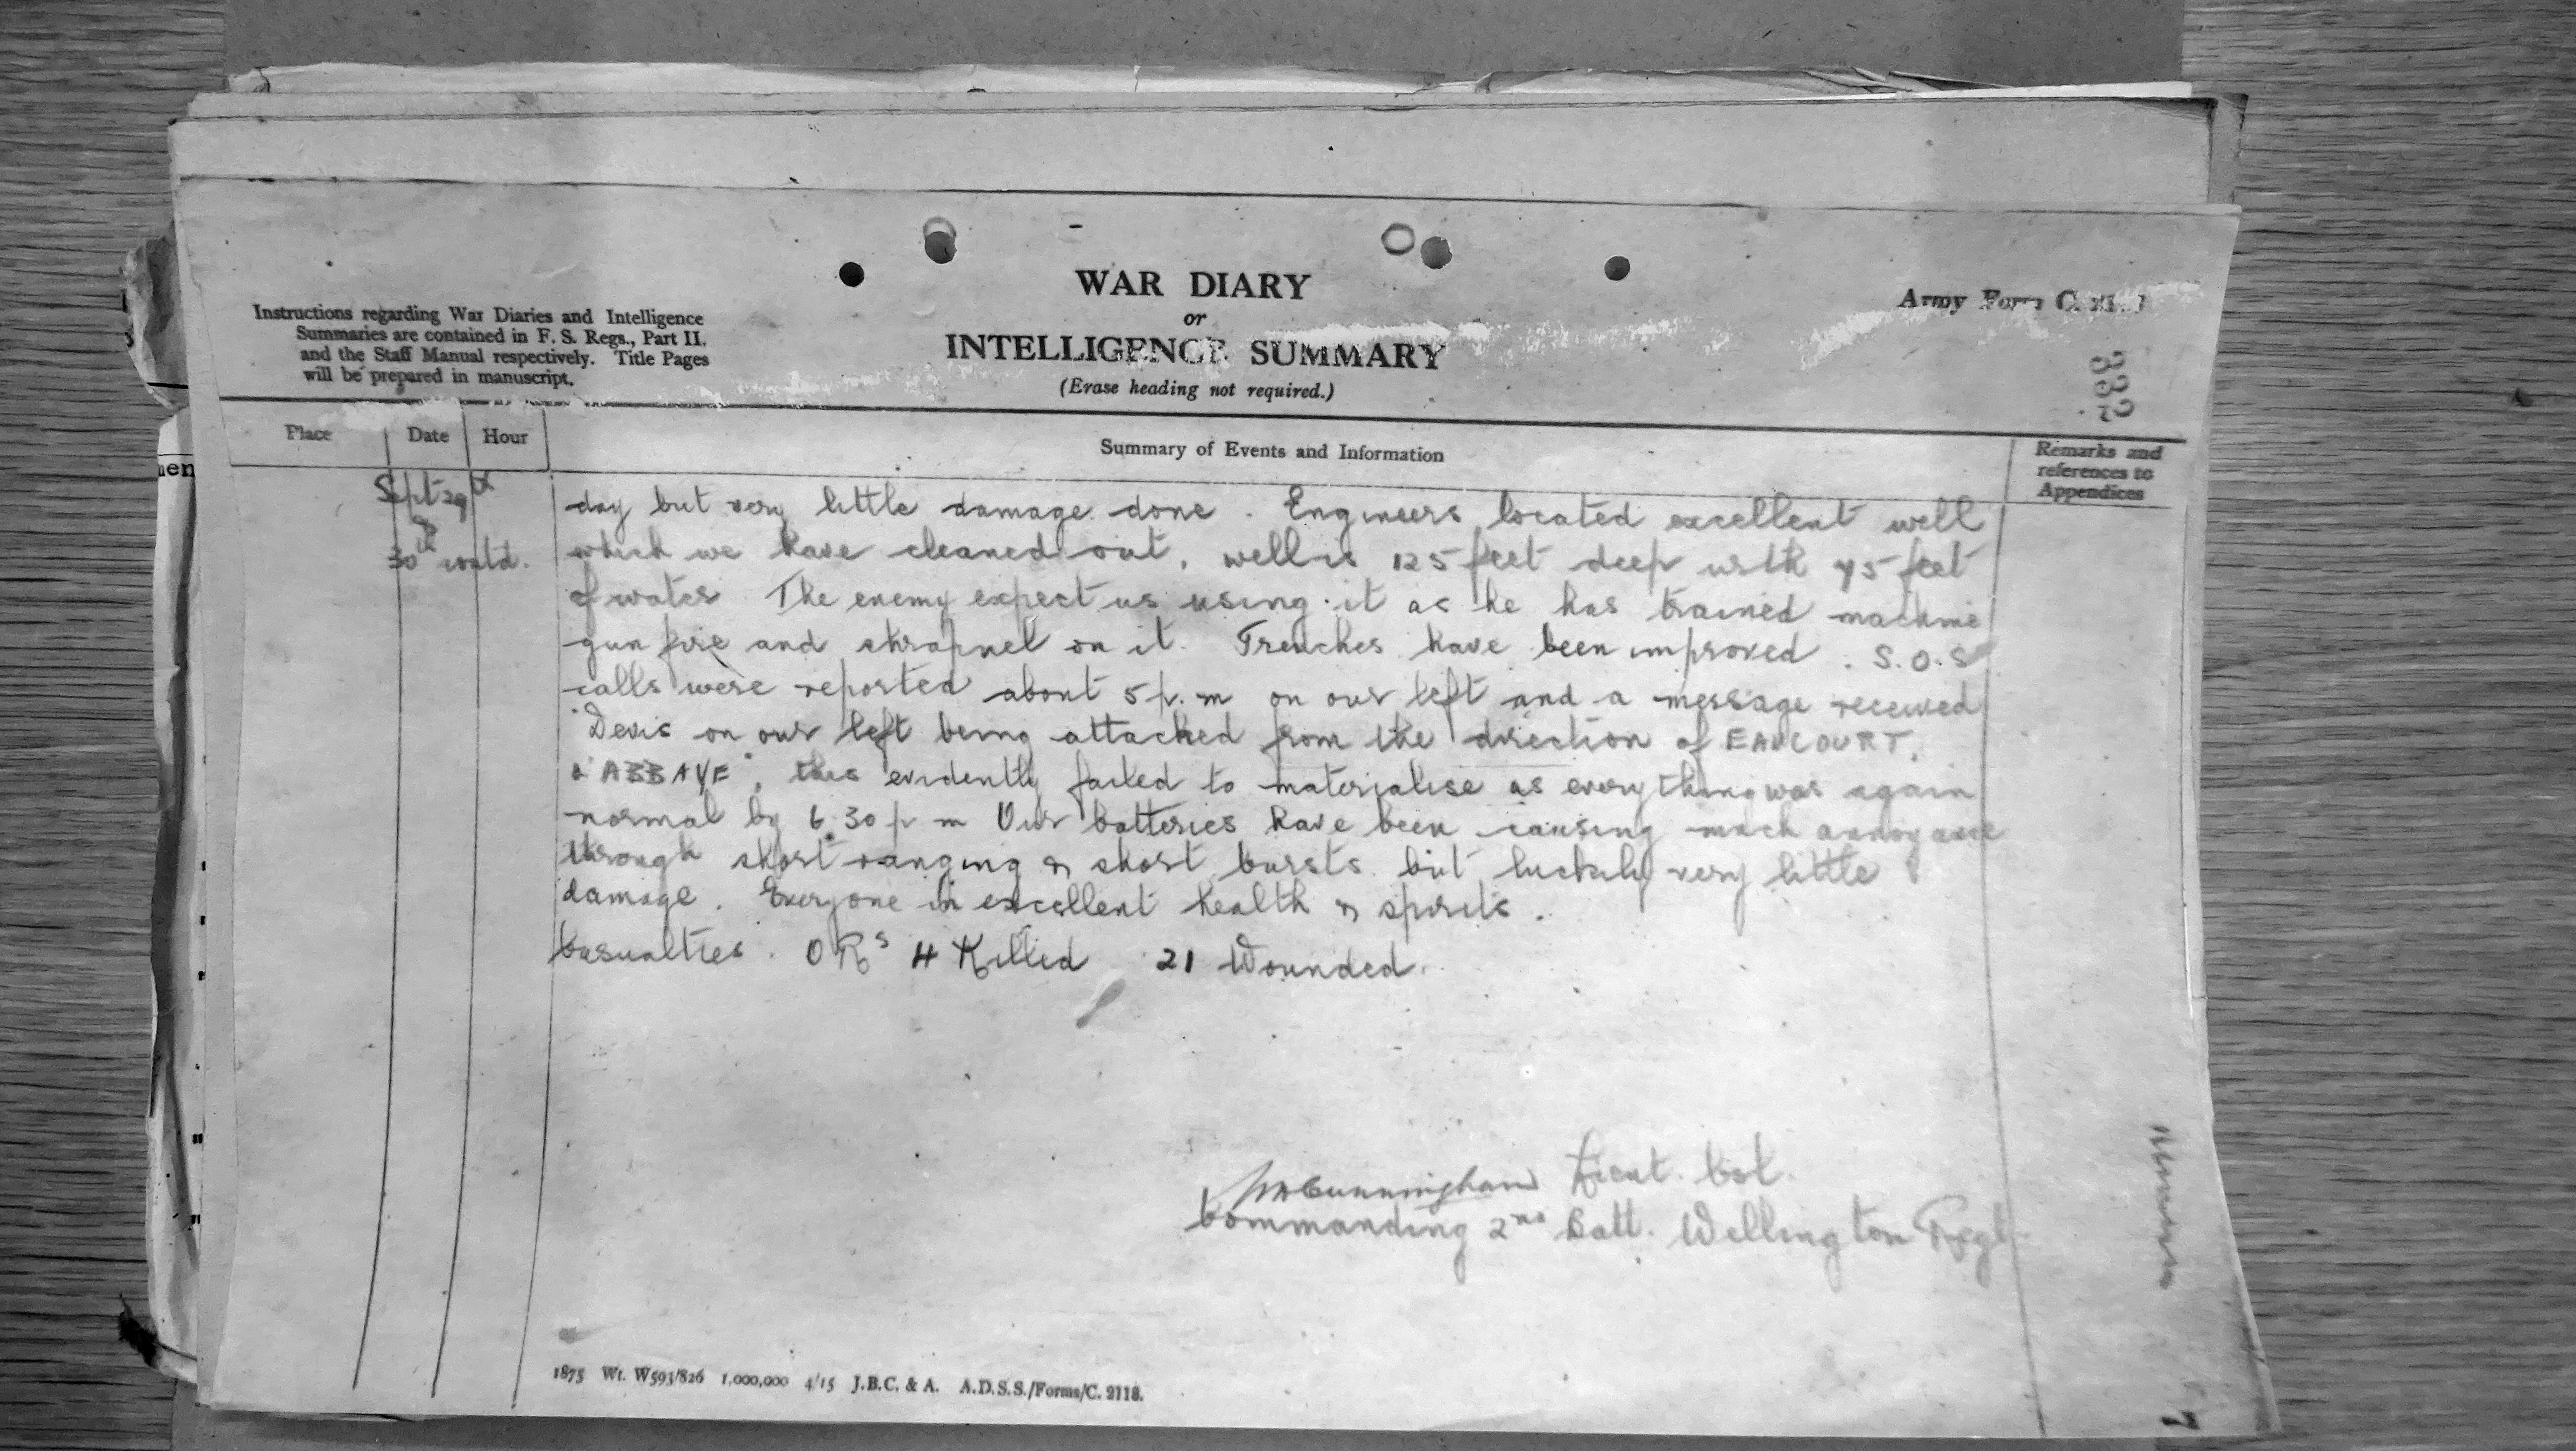 WAR DIARY
or
INTELLIGENCE SUMMARY
(Erase heading not required.)
Instructions regarding War Diaries and Intelligence
Summaries are contained in F. S. Regs., Part II.
and the Staff Manual respectively. Title Pages
will be prepared in manuscript.
Army Form C.
332
Place Date Hour Summary of Events and Information Remarks and
references to
Appendices
Sept 29th
&
30th contd.
day but very little damage done. Engineers located excellent well
which we have cleaned out, well is 125 feet deep with 45 feet
of water. The enemy expect us using it as he has trained machine
gun fire and shrapnel on it. Trenches have been improved. S.O.S
calls were reported about 5 p.m on our left and a message received
"Devis on our left being attacked from the direction of EAUCOURT.
L'ABBAYE", this evidently failed to materialise as everything was again
normal by 6.30 p m Our batteries have been causing much annoyance
through short ranging & short bursts but luckily very little
damage. Everyone in excellent health & spirits.
Casualties. O Rs 4 Killed 21 Wounded.
Cunningham Lieut. Col.
Commanding 2nd Batt. Wellington Regt.
1875 Wt. W593/826 1,000,000 4/15 J.B.C. & A. A.D.S.S./Forms/C. 2118.